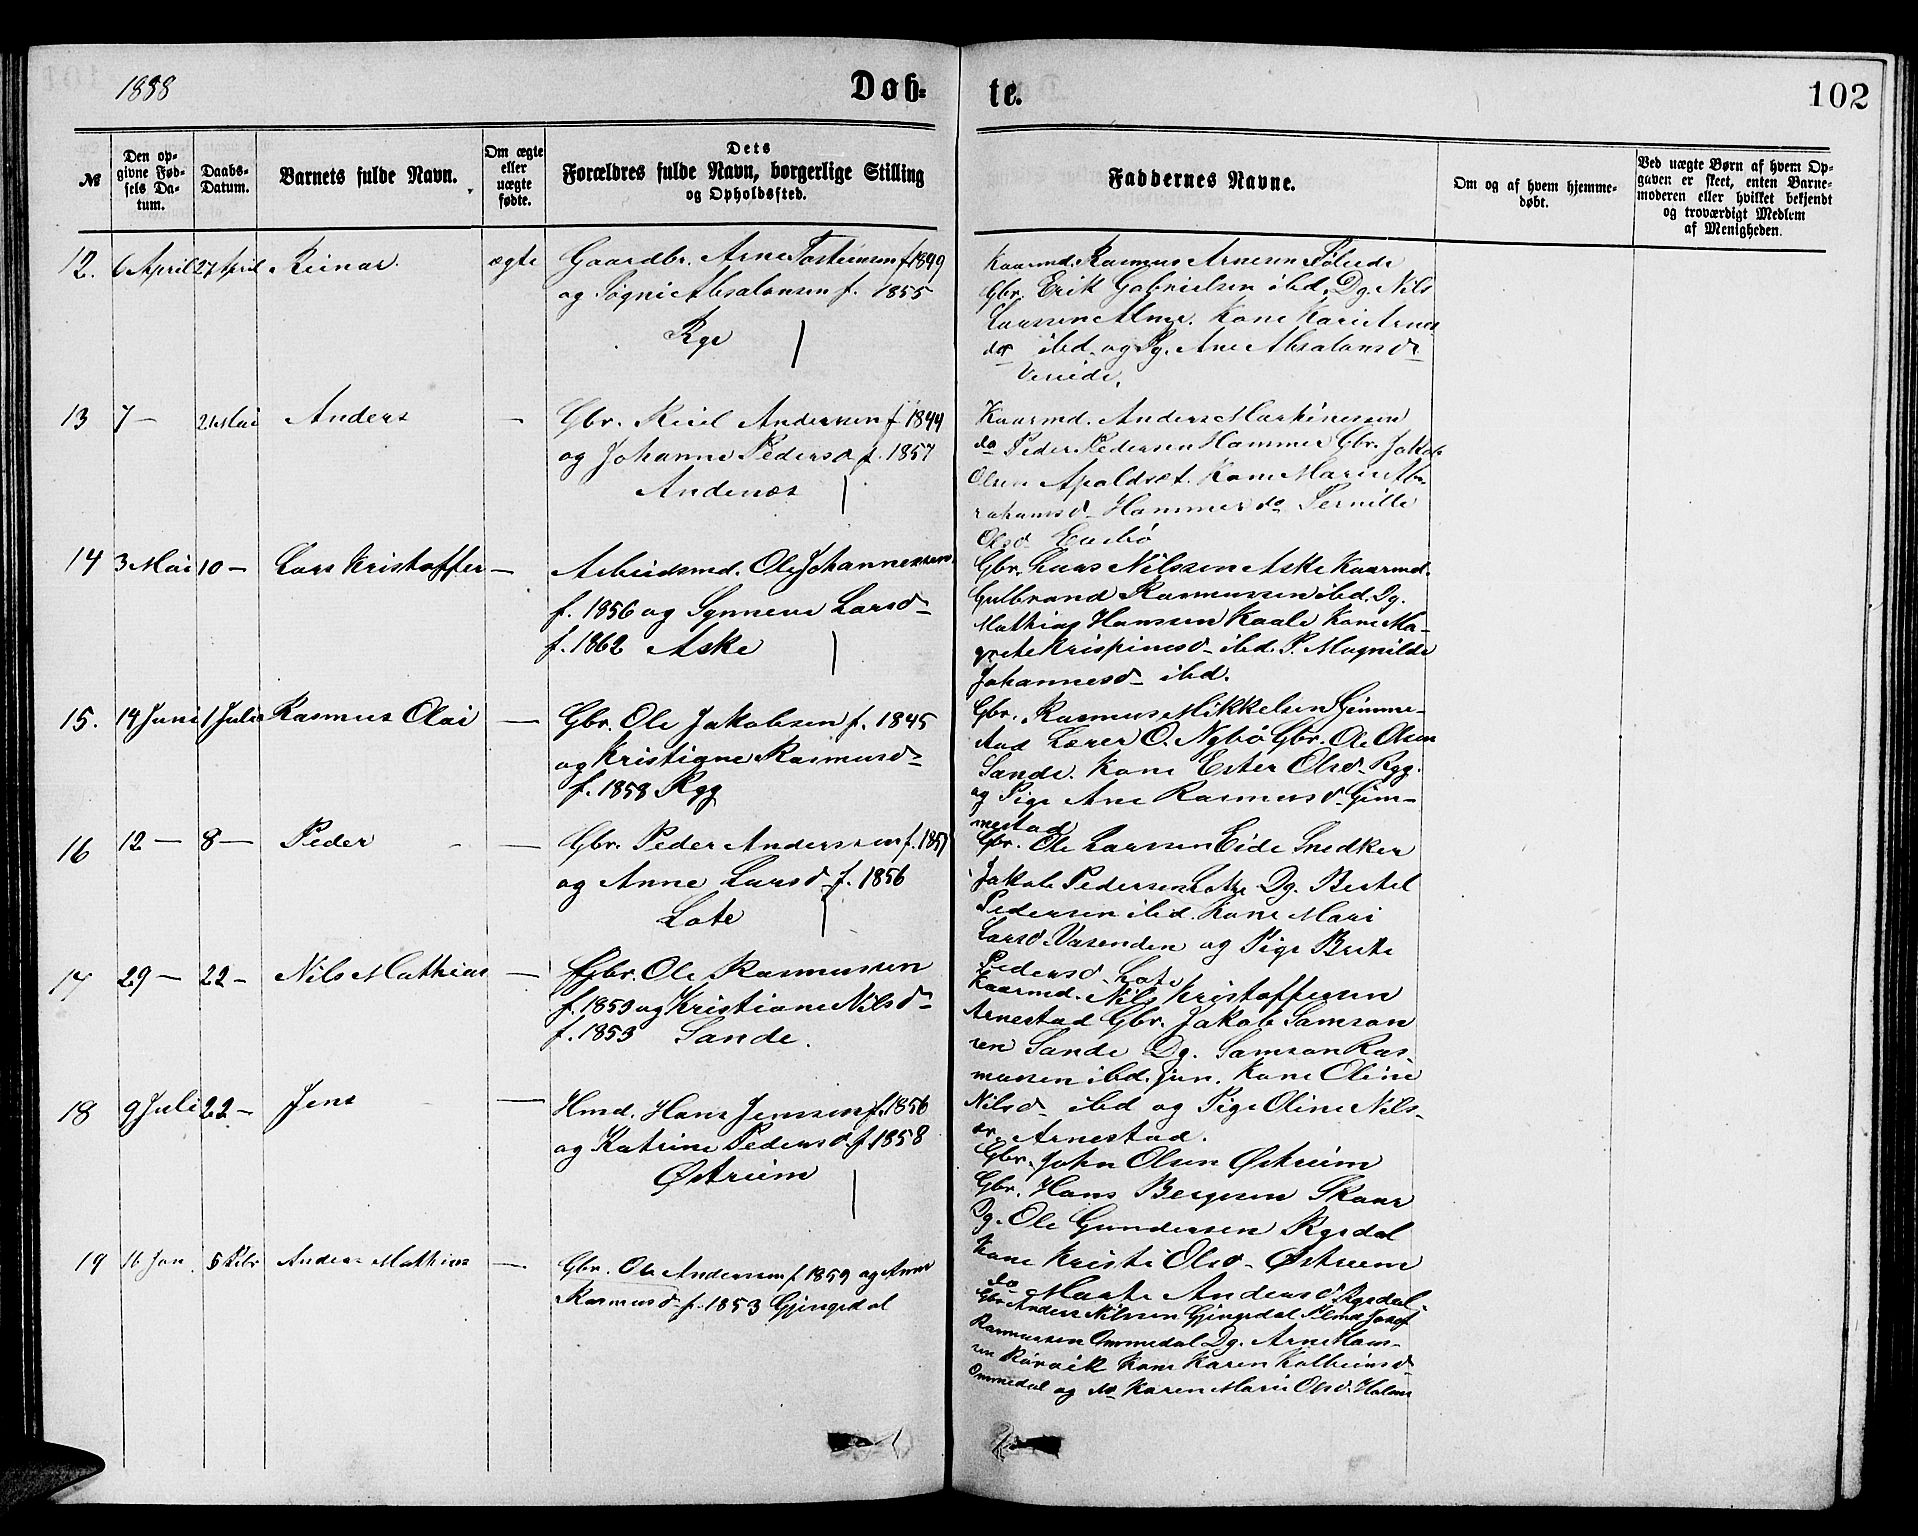 1888 Døb- te. 102
№
Den op-
givne Fød-
sels Da-
tum.
Daabs-
Datum.
Barnets fulde Navn.
Om ægte
eller
uægte
fødte.
Dets
Forældres fulde Navn, borgerlige Stilling
og Opholdssted.
Faddernes Navne.
Om og af hvem hjemme-
døbt.
Ved uægte Børn af hvem Op-
gaven er skeet, enten Barne-
moderen eller hvilket bekjendt
og troværdigt Medlem
af Menigheden.
12. 6 April 27 April Reinar ægte
Gaardbr. Arne Torsteinsen f 1849
og Absalonsen f. 1855
Ryg
Kaarmd. Rasmus Arnesen
Gbr. Erik Gabrielsen ibd. Dg. Nils
Larssen Alme. Kone Kari Arnes
dr ibd. og Pg. Ane Absalonsd
13 7 — 21 Mai Anders —
Gbr. Andersen f 1844
og Johanne Pedersd f. 1857
Andenæs
Kaarmd. Anders Markinussen
do Peder Pedersen Hammer Gbr. Jakob
Olsen Apaldsæt. Kone Marie Ab-
rahamsd Hammer do Pernille
Olsd
14 3 Mai 10 — Lars Kristoffer —
Arbeidsmd. Ole Johannessen
f. 1856 og Synneve Larsd
f. 1862 Aske
Gbr. Lars Nilssen Aske Kaarmd.
Gulbrand Rasmussen ibd. Dg.
Mathias Hanssen Kaale Kone Ma-
grete Krispinusd ibd. P. Magnilde
Johannesd ibd.
15. 14 Juni 1 Juli Rasmus Olai —
Gbr. Ole Jakobsen f. 1845
og Kristiane Rasmusd
f. 1858 Ryg
Gbr. Rasmus Mikkelsen Gimme-
stad Lærer O. Nybø Gbr. Ole Olsen
Sande. Kone Ester Olsd Ryg.
og Pige Ane Rasmusd Gim-
mestad
16 12 — 8 — Peder —
Gbr. Peder Anderssen f. 1851
og Anne Larsd f. 1856
Lote
Gbr. Ole Larssen Eide Snedker
Jakob Pedersen Lote Dg. Bertel
Pedersen ibd. Kone Mari
Larsd. Vasenden og Pige Brite
Pedersd Lote
17 29 — 22 — Nils Mathias —
Gbr. Ole Rasmussen
f. 1859 og Kristiane Nilsd
f. 1853 Sande.
Kaarmd. Nils Kristoffersen
Arnestad Gbr. Jakob Samson
sen Sande Dg. Samson Ras-
mussen ibd. jun. Kone Oline
Nilsd ibd og Pige Oline Nils-
dr. Arnestad.
18 9 Juli 22 — Jens —
Hmd. Hans Jenssen f. 1856
og Katrine Pedersd. f. 1858
Østreim
Gbr. John Olsen Østreim
Gbr. Hans Bergesen Skaar
Dg. Ole Gundersen Rygdal
Kone Kristi Olsd Østreim
do Marte Andersd Rygdal
19 16 Jan. 5 Febr Anders Mathias —
Gbr. Ole Anderssen f 1859 og Anne
Rasmusd f. 1853 Gjengedal
Gbr. Anders Nilssen Gjengedal Josef
Rasmussen Ommedal Dg. Arne Hans-
sen Rørvik Kone Karen Kolbeinsd
Ommedal og do Karen Marie Olsd. Holme